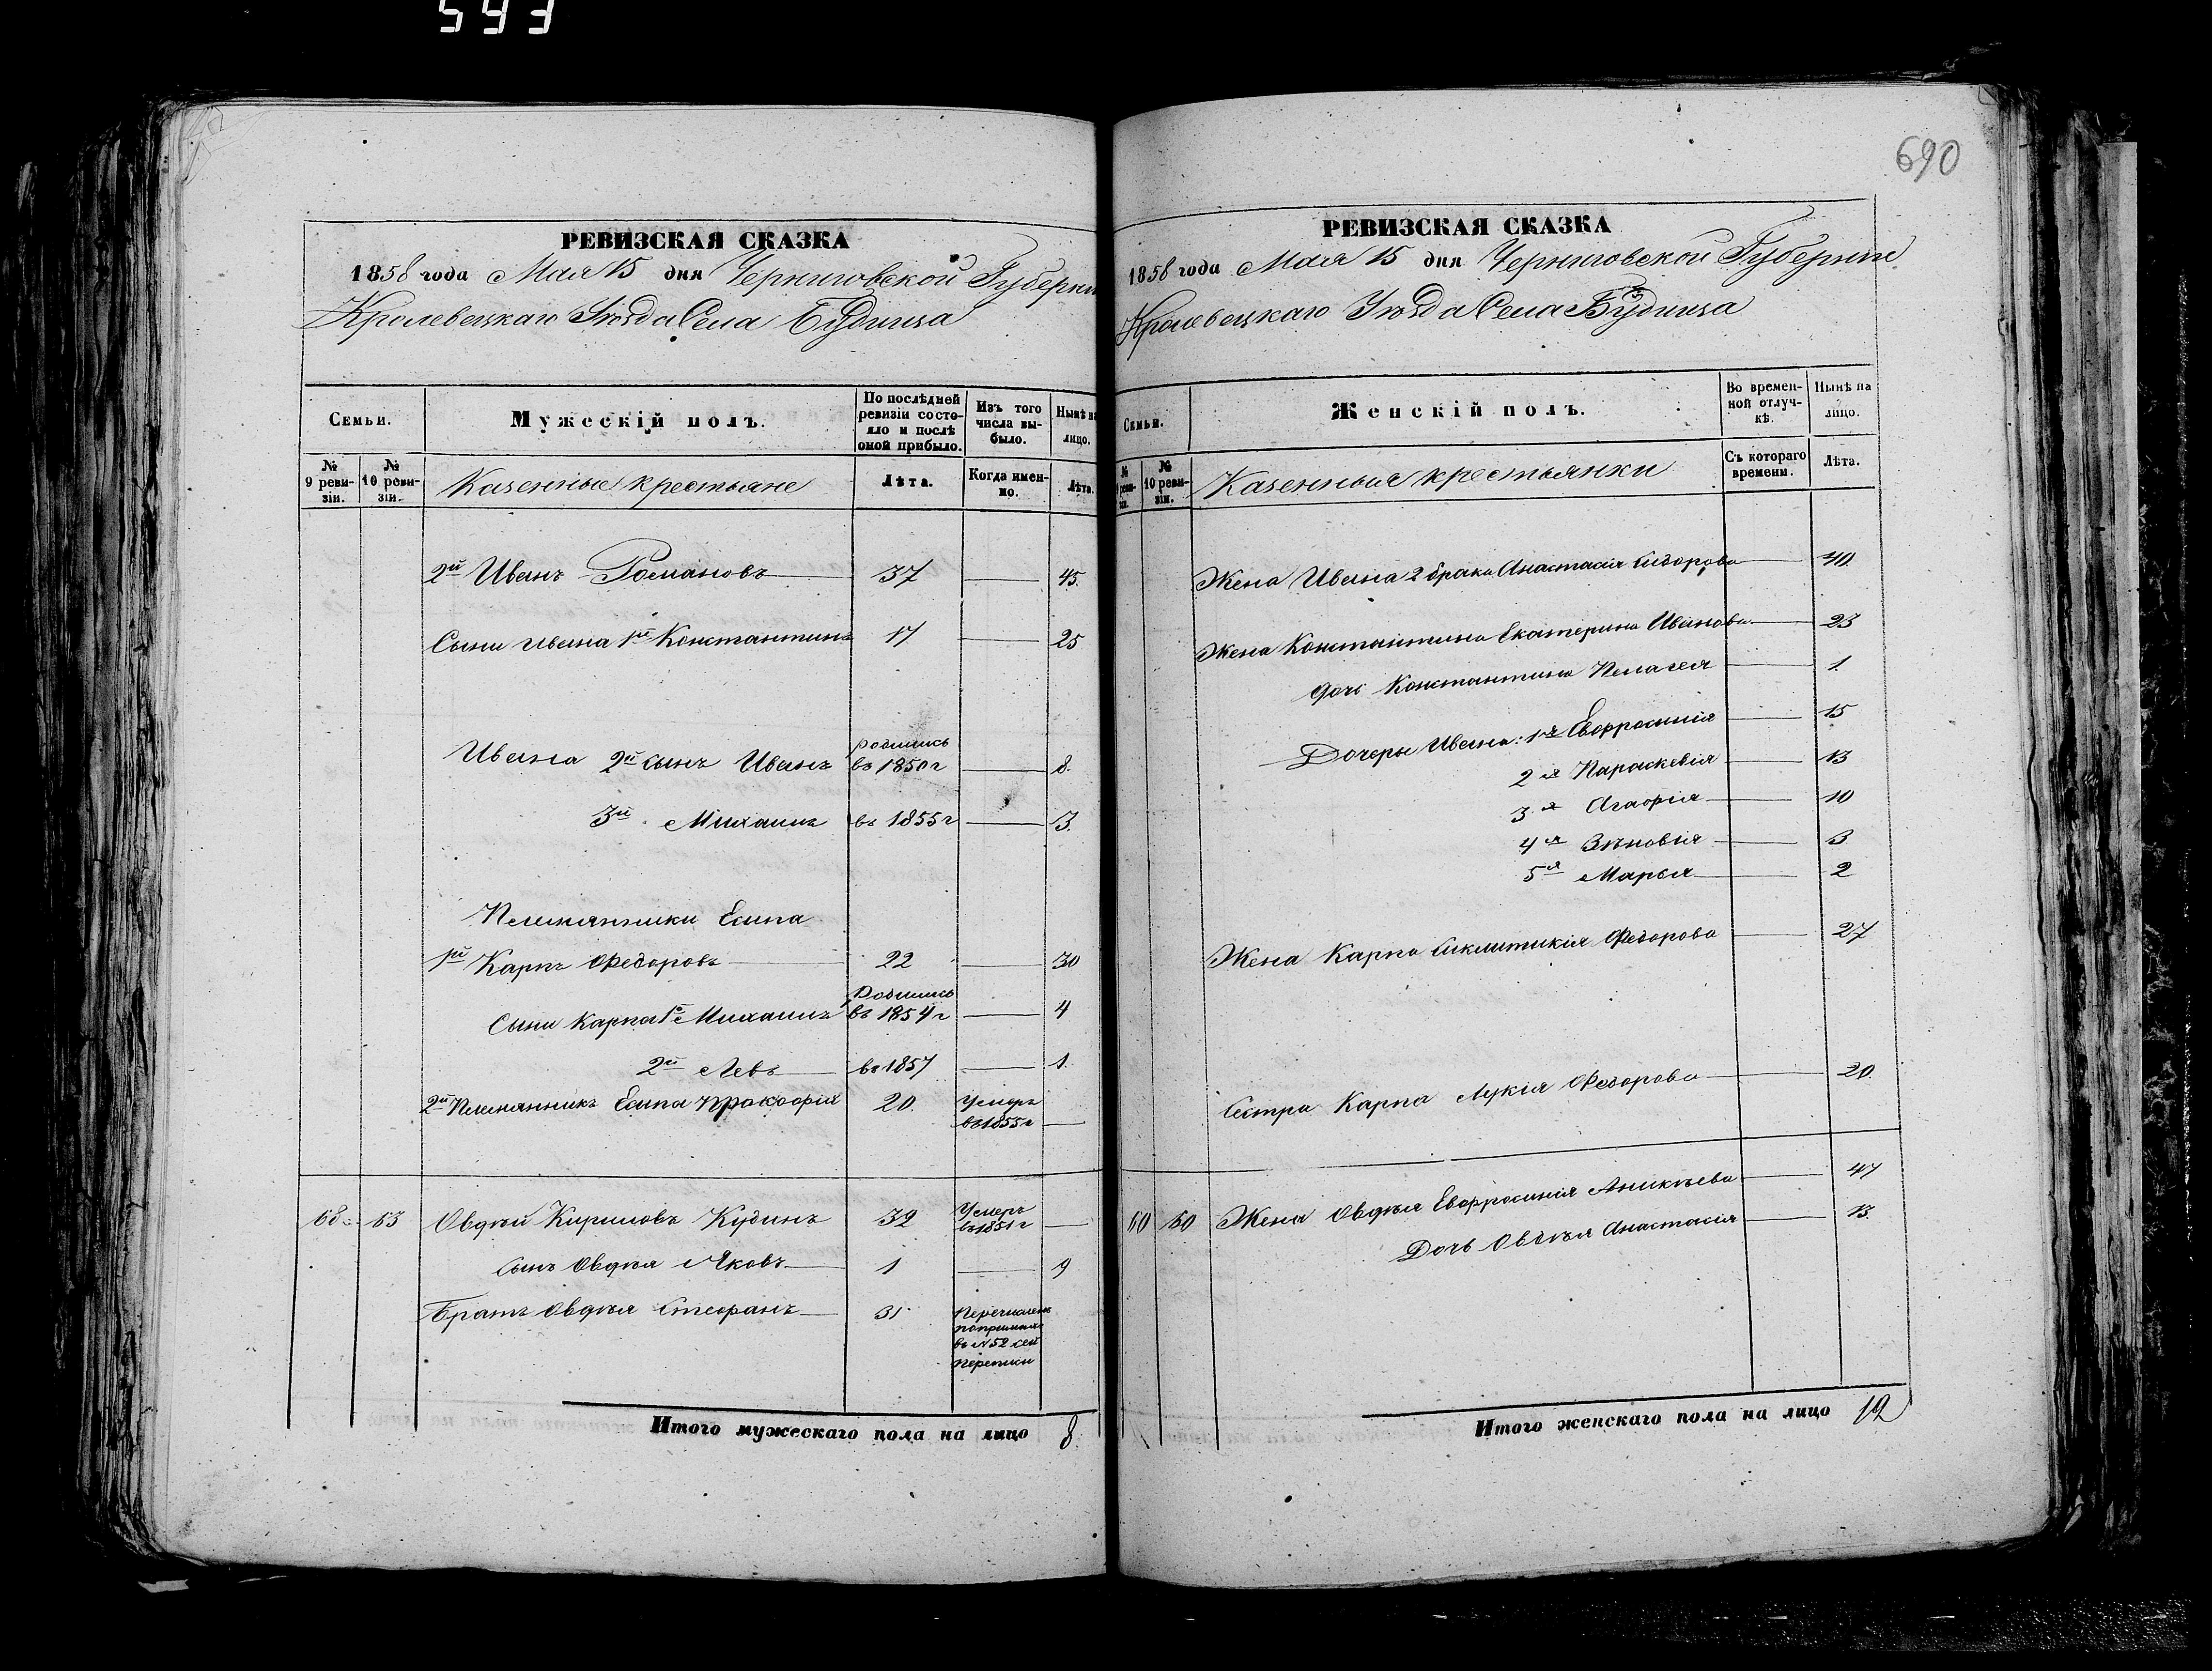 593
690
РЕВИЗСКАЯ СКАЗКА
1858 года Мая 15 дня Черниговской Губерни
Кролевецкаго Уѣзда Села Будища
Семьи.
Мужескій полъ.
По послѣдней ревизіи состояло и послѣ оной прибыло.
Изъ того числа выбыло.
Нынѣ на лицо.
№ 9 ревизіи.
№ 10 ревизіи.
Казенные крестьяне
Лѣта.
Когда именно.
Лѣта.
2й Иванъ Романовъ 37 45.
Сыни Ивана 1й Константинъ 17 25
Ивана 2й сынъ Иванъ Родились въ 1850 г 8.
3й Михаилъ въ 1855 г 3.
Племянники Есипа
1й Карпъ Федоровъ 22 30
Сыни Карпа 1й Михаилъ Родились въ 1854 г 4
2й Левъ въ 1857 1.
2й Племянникъ Есипа Прокофій 20. Умеръ въ 1855 г
68 63 Овдѣй Кириловъ Кудинъ 32 Умеръ въ 1851 г
Сынъ Овдѣя Яковъ 1 9
Братъ Овдѣя Стефанъ 31
въ №52 сей
переписи
Итого мужескаго пола на лицо 8
РЕВИЗСКАЯ СКАЗКА
1858 года Мая 15 дня Черниговской Губерніи
Кролевецкаго Уѣзда Села Будища
Семьи.
Женскій полъ.
Во временной отлучкѣ.
Нынѣ на лицо.
№ 10 ревизіи.
Казенныя крестьянки
Съ котораго времени.
Лѣта.
Жена Ивана 2 брака Анастасія Сидорова 40.
Жена Константина Екатерина Иванова 23
Дочь Константина Пелагея 1.
Дочеры Ивана: 1я Евфросинія 15
2я Параскевія 13
3я Агафія 10
4я Зѣновія 3
5я Марья 2
Жена Карпа Сиклитикія Федорова 27
Сестра Карпа Лукія Федорова 20.
60 60 Жена Овдѣя Евфросинія Аникѣева 47
Дочь Овдѣя Анастасія 13.
Итого женскаго пола на лицо 12